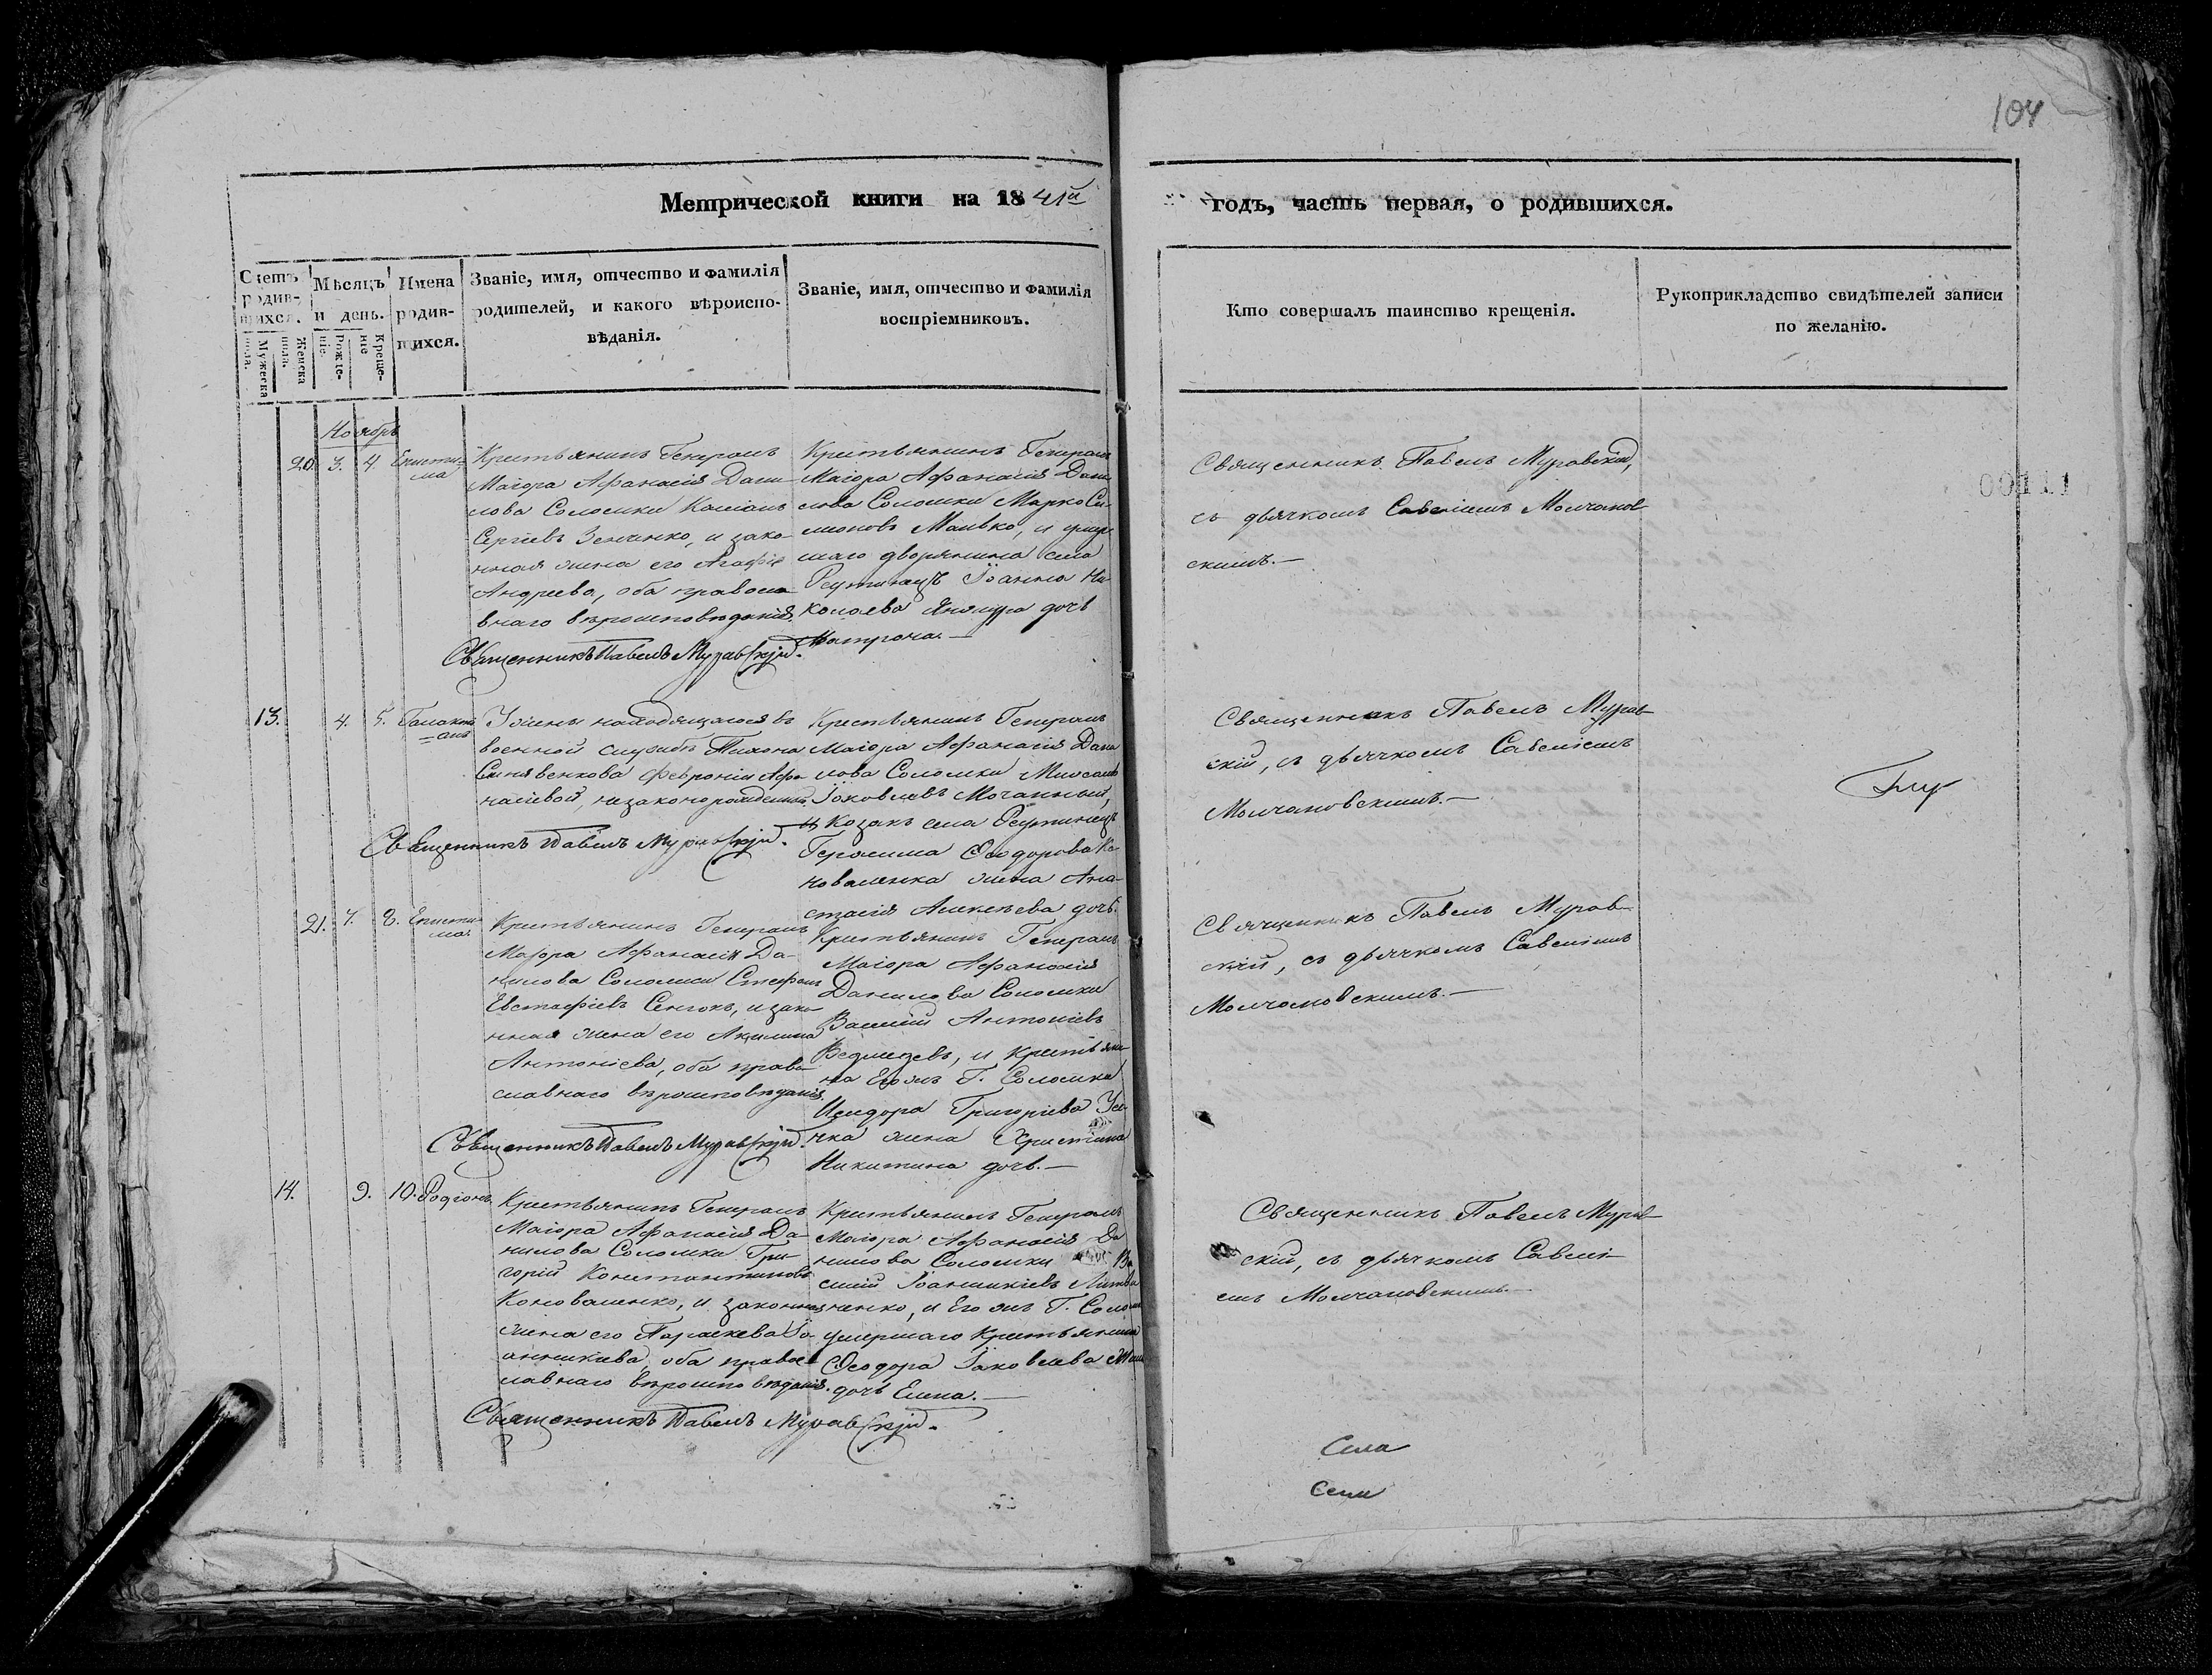 104
Метрической книги на 1841й
годъ, часть первая, о родившихся.
Счетъ родив-
шихся.
Мужеска
пола.
Женска
пола.
Мѣсяцъ
и день.
Рожде-
ніе.
Креще-
ніе
Имена
родив-
шихся.
Званіе, имя, отчество и фамилія
родителей, и какого вѣроиспо-
вѣданія.
Званіе, имя, отчество и фамилія
воспріемниковъ.
Кто совершалъ таинство крещенія.
Рукоприкладство свидѣтелей записи
по желанію.
Ноябрь
20. 3. 4. Еписти-
ма
Крестьянинъ Генералъ
Маіора Афанасія Дани-
лова Соломки Касіанъ
Сергіевъ Зенченко, и зако-
нная жена его Агафія
Андреева, оба правосла-
внаго вѣроисповѣданія.
Священникъ Павелъ Муравскій.
Крестьянинъ Генералъ
Маіора Афанасія Дани
лова Соломки Марко Си-
меоновъ Малько, и умер-
шаго дворянина села
Реутинецъ Іоанна Ни-
колаева дочь
Матрона.—
Священникъ Павелъ Муравскій,
съ дьячкомъ Савеліемъ Молчанов-
скимъ.—
00111
13. 4. 5. Галакті-
онъ
У жены находящагося въ
военной службѣ Тихона
Февроніи Афа-
насіевой, незаконнорожденный
Священникъ Павелъ Муравскій.
Крестьянинъ Генералъ
Маіора Афанасія Дани
лова Соломки
Іаковлевъ Мочанный,
и Козака села Реутинецъ
Герасима Ѳеодорова Ко-
новаленка жена Ана-
стасія Алексѣева дочь.
Священникъ Павелъ Мурав-
скій, съ дьячкомъ Савеліемъ
Молчановскимъ.—
21. 7. 8. Еписти-
ма.
Крестьянинъ Генералъ
Маіора Афанасія Да-
нилова Соломки Стефанъ
Евстафіевъ Сенчокъ, и зако-
нная жена его Акилина
Антоніева, оба право-
славнаго вѣроисповѣданія,
Священникъ Павелъ Муравскій.
Крестьянинъ Генералъ
Маіора Афанасія
Данилова Соломки
Василій Антоніевъ
Ведмедевъ, и Крестьяни-
на Его жъ Г. Соломки
Исидора Григоріева
жена Христина
Никитина дочь.—
Священникъ Павелъ Мурав-
скій, съ дьячкомъ Савеліемъ
Молчановскимъ.—
14. 9. 10. Родіонъ
Крестьянинъ Генералъ
Маіора Афанасія Да-
нилова Соломки Гри-
горій Константиновъ
Коноваленко, и законная
жена его Параскева Іо-
анникіева, оба правос-
лавнаго вѣроисповѣданія.
Священникъ Павелъ Муравскій.
Крестьянинъ Генералъ
Маіора Афанасія Да
нилова Соломки Ва
силій Іоанникіевъ Литви
ненко, и Его жъ Г. Соломки
умершаго Крестьянина
Ѳеодора Іаковлева
дочь Елена.—
Священникъ Павелъ Мурав-
скій, съ дьячкомъ Савелі-
емъ Молчановскимъ.—
Села
Сели